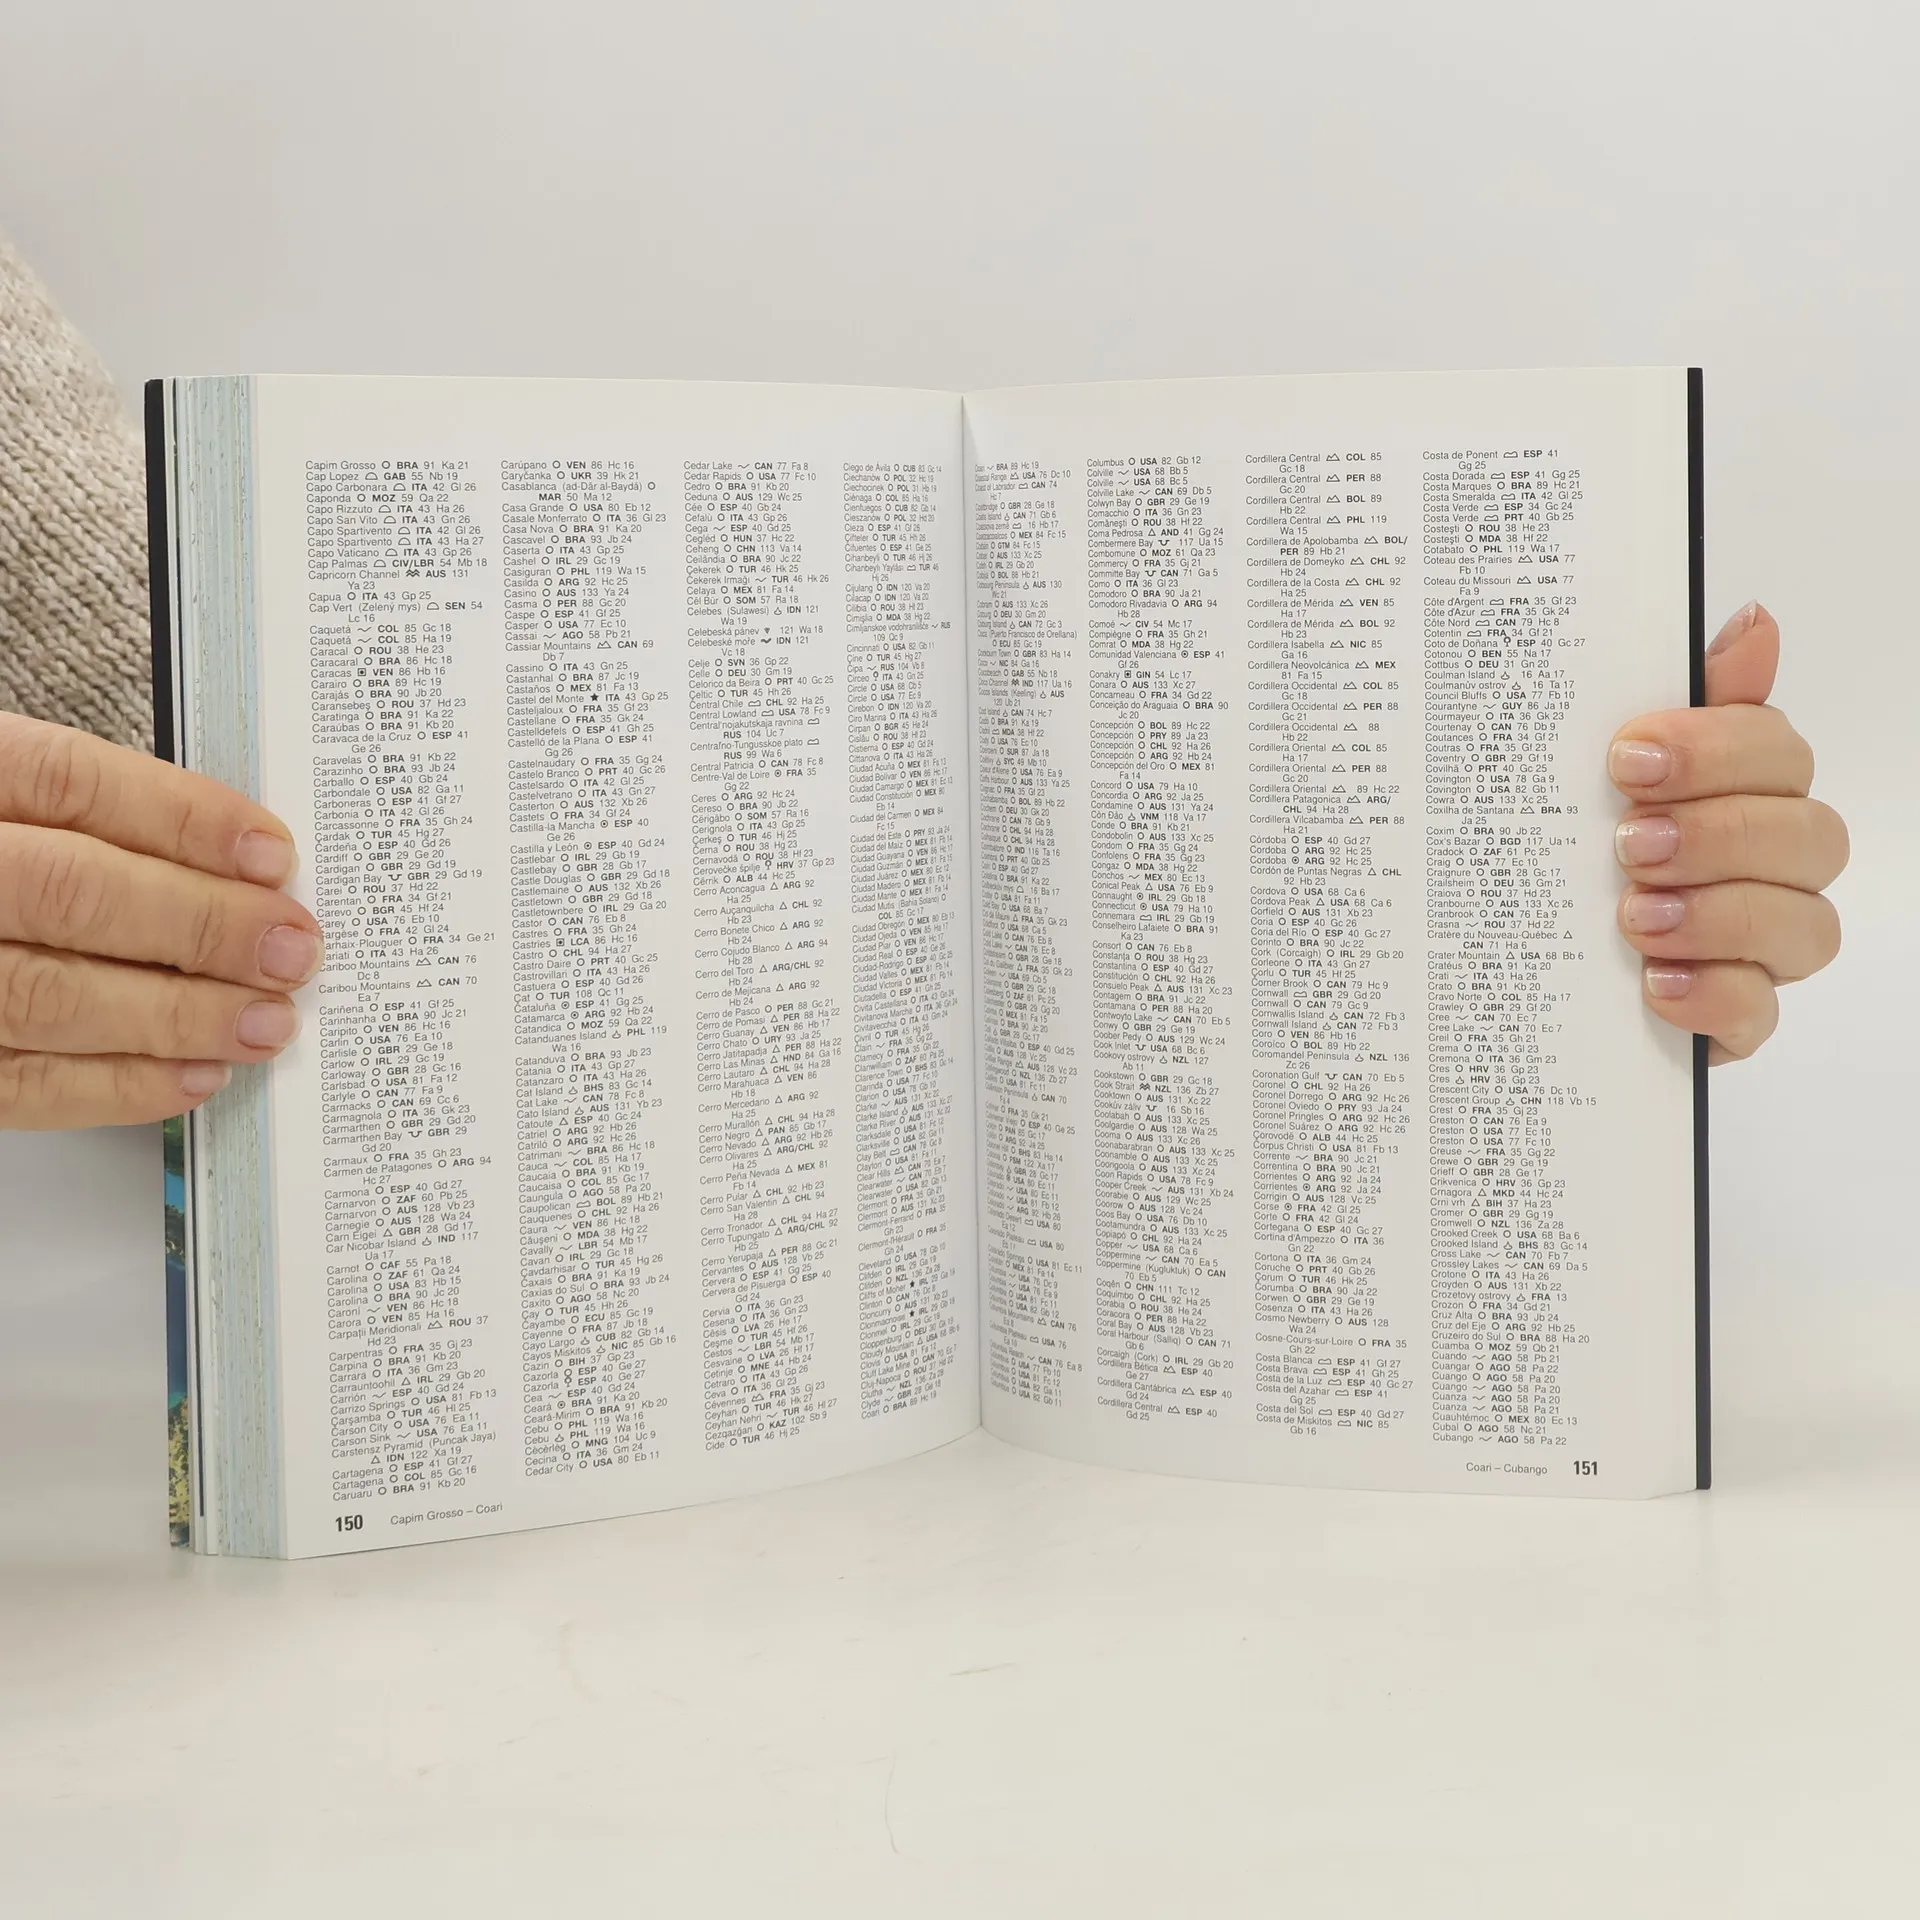 Capim Grosso BRA 91 Ka 21
Cap Lopez GAB 55 Nb 19
Capo Carbonara ITA 42 Gl 26
Caponda MOZ 59 Qa 22
Capo Rizzuto ITA 43 Ha 26
Capo San Vito ITA 43 Gn 26
Capo Spartivento ITA 42 Gl 26
Capo Spartivento ITA 43 Ha 27
Capo Vaticano ITA 43 Gp 26
Cap Palmas CIV/LBR 54 Mb 18
Capricorn Channel AUS 131
Ya 23
Capua ITA 43 Gp 25
Cap Vert (Zelený mys) SEN 54
Lc 16
Caquetá COL 85 Gc 18
Caquetá COL 85 Ha 19
Caracal ROU 38 He 23
Caracaral BRA 86 Hc 18
Caracas VEN 86 Hb 16
Carairo BRA 89 Hc 19
Carajás BRA 90 Jb 20
Caransebeş ROU 37 Hd 23
Caratinga BRA 91 Ka 22
Caraúbas BRA 91 Kb 20
Caravaca de la Cruz ESP 41
Ge 26
Caravelas BRA 91 Kb 22
Carazinho BRA 93 Jb 24
Carballo ESP 40 Gb 24
Carbondale USA 82 Ga 11
Carboneras ESP 41 Gf 27
Carbonia ITA 42 Gl 26
Carcassonne FRA 35 Gh 24
Çardak TUR 45 Hg 27
Cardeña ESP 40 Gd 26
Cardiff GBR 29 Ge 20
Cardigan GBR 29 Gd 19
Cardigan Bay GBR 29 Gd 19
Carei ROU 37 Hd 22
Carentan FRA 34 Gf 21
Carevo BGR 45 Hf 24
Carey USA 76 Eb 10
FRA 42 Gl 24
FRA 34 Ge 21
ITA 43 Ha 26
Cariboo Mountains CAN 76
Dc 8
Caribou Mountains CAN 70
Ea 7
Cariñena ESP 41 Gf 25
Carinhanha BRA 90 Jc 21
Caripito VEN 86 Hc 16
Carlin USA 76 Ea 10
Carlisle GBR 29 Ge 18
Carlow IRL 29 Gc 19
Carloway GBR 28 Gc 16
Carlsbad USA 81 Fa 12
Carlyle CAN 77 Fa 9
Carmacks CAN 69 Cc 6
Carmagnola ITA 36 Gk 23
Carmarthen GBR 29 Gd 20
Carmarthen Bay GBR 29
Gd 20
Carmaux FRA 35 Gh 23
Carmen de Patagones ARG 94
Hc 27
Carmona ESP 40 Gd 27
Carnarvon ZAF 60 Pb 25
Carnarvon AUS 128 Vb 23
Carnegie AUS 128 Wa 24
Carn Eigei GBR 28 Gd 17
Car Nicobar Island IND 117
Ua 17
Carnot CAF 55 Pa 18
Carolina ZAF 61 Qa 24
Carolina USA 83 Hb 15
Carolina BRA 90 Jc 20
Caroní VEN 86 Hc 18
Carora VEN 85 Ha 16
Carpaţii Meridionali ROU 37
Hd 23
Carpentras FRA 35 Gj 23
Carpina BRA 91 Kb 20
Carrara ITA 36 Gm 23
Carrauntoohil IRL 29 Gb 20
Carrión ESP 40 Gd 24
Carrizo Springs USA 81 Fb 13
Çarşamba TUR 46 Hl 25
Carson City USA 76 Ea 11
Carson Sink USA 76 Ea 11
Carstensz Pyramid (Puncak Jaya)
IDN 122 Xa 19
Cartagena ESP 41 Gf 27
Cartagena COL 85 Gc 16
Caruaru BRA 91 Kb 20
Carúpano VEN 86 Hc 16
Caryčanka UKR 39 Hk 21
Casablanca (ad-Dār al-Baydā)
MAR 50 Ma 12
Casa Grande USA 80 Eb 12
Casale Monferrato ITA 36 Gl 23
Casa Nova BRA 91 Ka 20
Cascavel BRA 93 Jb 24
Caserta ITA 43 Gp 25
Cashel IRL 29 Gc 19
Casiguran PHL 119 Wa 15
Casilda ARG 92 Hc 25
Casino AUS 133 Ya 24
Casma PER 88 Gc 20
Caspe ESP 41 Gf 25
Casper USA 77 Ec 10
Cassai AGO 58 Pb 21
Cassiar Mountains CAN 69
Db 7
Cassino ITA 43 Gn 25
Castanhal BRA 87 Jc 19
Castaños MEX 81 Fa 13
Castel del Monte ITA 43 Gp 25
Casteljaloux FRA 35 Gf 23
Castellane FRA 35 Gk 24
Castelldefels ESP 41 Gh 25
Castelló de la Plana ESP 41
Gg 26
Castelnaudary FRA 35 Gg 24
Castelo Branco PRT 40 Gc 26
Castelsardo ITA 42 Gl 25
Castelvetrano ITA 43 Gn 27
Casterton AUS 132 Xb 26
Castets FRA 34 Gf 24
Castilla-la Mancha ESP 40
Ge 26
Castilla y León ESP 40 Gd 24
Castlebar IRL 29 Gb 19
Castlebay GBR 28 Gb 17
Castle Douglas GBR 29 Gd 18
Castlemaine AUS 132 Xb 26
Castletown GBR 29 Gd 18
Castletownbere IRL 29 Ga 20
Castor CAN 76 Eb 8
Castres FRA 35 Gh 24
Castries LCA 86 Hc 16
Castro CHL 94 Ha 27
Castro Daire PRT 40 Gc 25
Castrovillari ITA 43 Ha 26
Castuera ESP 40 Gd 26
Çat TUR 108 Qc 11
Cataluña ESP 41 Gg 25
Catamarca ARG 92 Hb 24
Catandica MOZ 59 Qa 22
Catanduanes Island PHL 119
Wa 16
Catanduva BRA 93 Jb 23
Catania ITA 43 Gp 27
Catanzaro ITA 43 Ha 26
Cat Island BHS 83 Gc 14
Cat Lake CAN 78 Fc 8
Cato Island AUS 131 Yb 23
Catoute ESP 40 Gc 24
Catriel ARG 92 Hb 26
Catriló ARG 92 Hc 26
Catrimani BRA 86 Hc 18
Cauca COL 85 Ha 17
Caucaia BRA 91 Kb 19
Caucasia COL 85 Gc 17
Caungula AGO 58 Pa 20
Caupolican BOL 89 Hb 21
Cauquenes CHL 92 Ha 26
Caura VEN 86 Hc 18
Căuşeni MDA 38 Hg 22
Cavally LBR 54 Mb 17
Cavan IRL 29 Gc 18
Çavdarhisar TUR 45 Hg 26
Caxais BRA 91 Ka 19
Caxias do Sul BRA 93 Jb 24
Caxito AGO 58 Nc 20
Çay TUR 45 Hh 26
Cayambe ECU 85 Gc 19
Cayenne FRA 87 Jb 18
Cayo Largo CUB 82 Gb 14
Cayos Miskitos NIC 85 Gb 16
Cazin BIH 37 Gp 23
Cazorla ESP 40 Ge 27
Cazorla ESP 40 Ge 27
Cea ESP 40 Gd 24
Ceará BRA 91 Ka 20
Ceará-Mirim BRA 91 Kb 20
Cebu PHL 119 Wa 16
Cebu PHL 119 Wa 16
Cècèrlèg MNG 104 Uc 9
Cecina ITA 36 Gm 24
Cedar City USA 80 Eb 11
Cedar Lake CAN 77 Fa 8
Cedar Rapids USA 77 Fc 10
Cedro BRA 91 Kb 20
Ceduna AUS 129 Wc 25
Cée ESP 40 Gb 24
Cefalù ITA 43 Gp 26
Cega ESP 40 Gd 25
Cegléd HUN 37 Hc 22
Ceheng CHN 113 Va 14
Ceilândia BRA 90 Jc 22
Çekerek TUR 46 Hk 25
Çekerek Irmağı TUR 46 Hk 26
Celaya MEX 81 Fa 14
Cël Bür SOM 57 Ra 18
Celebes (Sulawesi) IDN 121
Wa 19
Celebeská pánev 121 Wa 18
Celebeské moře IDN 121
Vc 18
Celje SVN 36 Gp 22
Celle DEU 30 Gm 19
Celorico da Beira PRT 40 Gc 25
Çeltic TUR 45 Hh 26
Central Chile CHL 92 Ha 25
Central Lowland USA 78 Fc 9
Central'nojakutskaja ravnina
RUS 104 Uc 7
Centrafno-Tungusskoe plato
RUS 99 Wa 6
Central Patricia CAN 78 Fc 8
Centre-Val de Loire FRA 35
Gg 22
Ceres ARG 92 Hc 24
Cereso BRA 90 Jb 22
Cèrigàbo SOM 57 Ra 16
Cerignola ITA 43 Gp 25
Çerkeş TUR 46 Hj 25
Cerna ROU 38 Hg 23
Cernavodă ROU 38 Hf 23
Cerovečke špilje HRV 37 Gp 23
Cërrik ALB 44 Hc 25
Cerro Aconcagua ARG 92
Ha 25
Cerro Auçanquilcha CHL 92
Hb 23
Cerro Bonete Chico ARG 92
Hb 24
Cerro Cojudo Blanco ARG 94
Hb 28
Cerro del Toro ARG/CHL 92
Hb 24
Cerro de Mejicana ARG 92
Hb 24
Cerro de Pasco PER 88 Gc 21
Cerro de Pomasi PER 88 Ha 22
Cerro Guanay VEN 86 Hb 17
Cerro Chato URY 93 Ja 25
Cerro Jatitapadja PER 88 Ha 22
Cerro Las Minas HND 84 Ga 16
Cerro Lautaro CHL 94 Ha 28
Cerro Marahuaca VEN 86
Hb 18
Cerro Mercedario ARG 92
Ha 25
Cerro Murallón CHL 94 Ha 28
Cerro Negro PAN 85 Gb 17
Cerro Nevado ARG 92 Hb 26
Cerro Olivares ARG/CHL 92
Ha 25
Cerro Peña Nevada MEX 81
Fb 14
Cerro Pular CHL 92 Hb 23
Cerro San Valentin CHL 94
Ha 28
Cerro Tronador CHL 94 Ha 27
Cerro Tupungato ARG/CHL 92
Hb 25
Cerro Yerupaja PER 88 Gc 21
Cervantes AUS 128 Vb 25
Cervera ESP 41 Gg 25
Cervera de Pisuerga ESP 40
Gd 24
Cervia ITA 36 Gn 23
Cesena ITA 36 Gn 23
Cēsis LVA 26 He 17
Çeşme TUR 45 Hf 26
Cestos LBR 54 Mb 17
Cesvaine LVA 26 Hf 17
Cetinje MNE 44 Hb 24
Cetraro ITA 43 Gp 26
Ceva ITA 36 Gl 23
Cévennes FRA 35 Gj 23
Ceyhan TUR 46 Hk 27
Ceyhan Nehri TUR 46 Hl 27
Cezqazğan KAZ 102 Sb 9
Cide TUR 46 Hj 25
Ciego de Ávila CUB 83 Gc 14
Ciechanów POL 32 Hc 19
Ciechocinek POL 31 Hb 19
Ciénaga COL 85 Ha 16
Cienfuegos CUB 82 Gb 14
Cieszanów POL 32 Hd 20
Cieza ESP 41 Gf 26
Çifteler TUR 45 Hh 26
Cifuentes ESP 41 Ge 25
Cihanbeyli TUR 46 Hj 26
Cihanbeyli Yaylâsı TUR 46
Hj 26
Cijulang IDN 120 Va 20
Cilacap IDN 120 Va 20
Cilibia ROU 38 Hf 23
Cimişlia MDA 38 Hg 22
Cimljanskoe vodohranilišče RUS
109 Qc 9
Cincinnati USA 82 Gb 11
Çine TUR 45 Hg 27
Čipa RUS 104 Vb 8
Circeo ITA 43 Gn 25
Circle USA 68 Cb 5
Circle USA 77 Ec 9
Cirebon IDN 120 Va 20
Ciro Marina ITA 43 Ha 26
Cirpan BGR 45 He 24
Cislău ROU 38 Hf 23
Cistierna ESP 40 Gd 24
Cittanova ITA 43 Ha 26
Ciudad Acuña MEX 81 Fa 13
Ciudad Bolívar VEN 86 Hc 17
Ciudad Camargo MEX 81 Ec 13
Ciudad Constitución MEX 80
Eb 14
Ciudad del Carmen MEX 84
Fc 15
Ciudad del Este PRY 93 Ja 24
Ciudad del Maíz MEX 81 Fb 14
Ciudad Guayana VEN 86 Hc 17
Ciudad Guzmán MEX 81 Fa 15
Ciudad Juárez MEX 80 Ec 12
Ciudad Madero MEX 81 Fb 14
Ciudad Mante MEX 81 Fb 14
Ciudad Mutis (Bahía Solano)
COL 85 Gc 17
Ciudad Obregón MEX 80 Eb 13
Ciudad Ojeda VEN 85 Hg 17
Ciudad Piar VEN 86 Hc 17
Ciudad Real ESP 40 Ge 26
Ciudad-Rodrigo ESP 40 Gc 25
Ciudad Valles MEX 81 Fb 14
Ciudad Victoria MEX 81 Fb 14
Ciutadella ESP 41 Gh 25
Civita Castellana ITA 43 Gn 24
Civitanova Marche ITA 36 Gn 24
Civitavecchia ITA 43 Gm 24
Çivril TUR 45 Hg 26
Clain FRA 35 Gg 22
Clamecy FRA 35 Gh 22
Clanwilliam ZAF 60 Pa 25
Clarence Town BHS 83 Gc 14
Clarinda USA 77 Fc 10
Clarion USA 78 Gb 10
Clarke AUS 131 Xc 22
Clarke Island AUS 133 Xc 27
Clarke River AUS 131 Xc 22
Clarksdale USA 81 Fc 12
Clarksville USA 82 Ga 11
Clay Belt CAN 78 Gc 8
Clayton USA 81 Fa 11
Clear Hills CAN 70 Ea 7
Clearwater CAN 70 Eb 7
Clearwater USA 82 Gb 13
Clermont FRA 35 Gh 21
Clermont AUS 131 Xc 23
Clermont-Ferrand FRA 35
Gh 23
Clermont-l'Hérault FRA 35
Gh 24
Cleveland USA 78 Gb 10
Clifden IRL 29 Ga 19
Clifden NZL 136 Za 28
Cliffs of Moher IRL 29 Ga 19
Clinton CAN 76 Dc 8
Cloncurry AUS 131 Xb 23
Clonmacnoise IRL 29 Gb 19
Clonmel IRL 29 Gc 19
Cloppenburg DEU 30 Gl 19
Cloudy Mountain USA 68 Bb 6
Clovis USA 81 Fa 12
Cluff Lake Mine CAN 70 Ec 7
Cluj-Napoca ROU 37 Hd 22
Clutha NZL 136 Za 28
Clyde GBR 28 Ge 18
Coari BRA 89 Hc 19
150 Capim Grosso – Coari
Coari BRA 89 Hc 19
Coastal Range USA 76 Dc 10
Coast of Labrador CAN 74
Hc 7
Coatbridge GBR 28 Ge 18
Coats Island CAN 71 Gb 6
Coatsova země 16 Hb 17
Coatzacoalcos MEX 84 Fc 15
Cobán GTM 84 Fc 15
Cobar AUS 133 Xc 25
Cobh IRL 29 Gb 20
Cobija BOL 88 Hb 21
Cobourg Peninsula AUS 130
Wc 21
Cobram AUS 133 Xc 26
Coburg DEU 30 Gm 20
Coburg Island CAN 72 Gc 3
Coca (Puerto Francisco de Orellana)
ECU 85 Gc 19
Cockburn Town GBR 83 Ha 14
Coco NIC 84 Ga 16
Cocobeach GAB 55 Nb 18
Coco Channel IND 117 Ua 16
Cocos Islands (Keeling) AUS
120 Ub 21
Columbus USA 82 Gb 12
Colville USA 68 Bb 5
Colville USA 68 Bc 5
Colville Lake CAN 69 Db 5
Colwyn Bay GBR 29 Ge 19
Comacchio ITA 36 Gn 23
Comăneşti ROU 38 Hf 22
Coma Pedrosa AND 41 Gg 24
Combermere Bay 117 Ua 15
Combomune MOZ 61 Qa 23
Commercy FRA 35 Gj 21
Committe Bay CAN 71 Ga 5
Como ITA 36 Gl 23
Comodoro BRA 90 Ja 21
Comodoro Rivadavia ARG 94
Hb 28
Comoé CIV 54 Mc 17
Compiègne FRA 35 Gh 21
Comrat MDA 38 Hg 22
Comunidad Valenciana ESP 41
Gf 26
Conakry GIN 54 Lc 17
Conara AUS 133 Xc 27
Concarneau FRA 34 Gd 22
Conceição do Araguaia BRA 90
Jc 20
Concepción BOL 89 Hc 22
Concepción PRY 89 Ja 23
Concepción CHL 92 Ha 26
Concepción ARG 92 Hb 24
Concepción del Oro MEX 81
Fa 14
Concord USA 79 Ha 10
Concordia ARG 92 Ja 25
Condamine AUS 131 Ya 24
Côn Đảo VNM 118 Va 17
Conde BRA 91 Kb 21
Condobolin AUS 133 Xc 25
Condom FRA 35 Gg 24
Confolens FRA 35 Gg 23
Congaz MDA 38 Hg 22
Conchos MEX 80 Ec 13
Conical Peak USA 76 Eb 9
Connaught IRL 29 Gb 18
Connecticut USA 79 Ha 10
Connemara IRL 29 Gb 19
Conselheiro Lafaiete BRA 91
Ka 23
Consort CAN 76 Eb 8
Constanţa ROU 38 Hg 23
Constantina ESP 40 Gd 27
Constitución CHL 92 Ha 26
Consuelo Peak AUS 131 Xc 23
Contagem BRA 91 Jc 22
Contamana PER 88 Ha 20
Contwoyto Lake CAN 70 Eb 5
Conwy GBR 29 Ge 19
Coober Pedy AUS 129 Wc 24
Cook Inlet USA 68 Bc 6
Cookovy ostrovy NZL 127
Ab 11
Cookstown GBR 29 Gc 18
Cook Strait NZL 136 Zb 27
Cooktown AUS 131 Xc 22
Cookův záliv 16 Sb 16
Coolabah AUS 133 Xc 25
Coolgardie AUS 128 Wa 25
Cooma AUS 133 Xc 26
Coonabarabran AUS 133 Xc 25
Coonamble AUS 133 Xc 25
Coongoola AUS 133 Xc 24
Coon Rapids USA 78 Fc 9
Cooper Creek AUS 131 Xb 24
Coorabie AUS 129 Wc 25
Coorow AUS 128 Vc 24
Coos Bay USA 76 Db 10
Cootamundra AUS 133 Xc 25
Copiapó CHL 92 Ha 24
Copper USA 68 Ca 6
Coppermine CAN 70 Ea 5
Coppermine (Kugluktuk) CAN
70 Eb 5
Coqên CHN 111 Tc 12
Coquimbo CHL 92 Ha 25
Corabia ROU 38 He 24
Coracora PER 88 Ha 22
Coral Bay AUS 128 Vb 23
Coral Harbour (Salliq) CAN 71
Gb 6
Corcaigh (Cork) IRL 29 Gb 20
Cordillera Bética ESP 40
Ge 27
Cordillera Cantábrica ESP 40
Gd 24
Cordillera Central ESP 40
Gd 25
Cordillera Central COL 85
Gc 18
Cordillera Central PER 88
Gc 20
Cordillera Central BOL 89
Hb 22
Cordillera Central PHL 119
Wa 15
Cordillera de Apolobamba BOL/
PER 89 Hb 21
Cordillera de Domeyko CHL 92
Hb 24
Cordillera de la Costa CHL 92
Ha 25
Cordillera de Mérida VEN 85
Ha 17
Cordillera de Mérida BOL 92
Hb 23
Cordillera Isabella NIC 85
Ga 16
Cordillera Neovolcánica MEX
81 Fa 15
Cordillera Occidental COL 85
Gc 18
Cordillera Occidental PER 88
Gc 21
Cordillera Occidental 88
Hb 22
Cordillera Oriental COL 85
Ha 17
Cordillera Oriental PER 88
Gc 20
Cordillera Oriental 89 Hc 22
Cordillera Patagonica ARG/
CHL 94 Ha 28
Cordillera Vilcabamba PER 88
Ha 21
Córdoba ESP 40 Gd 27
Córdoba ARG 92 Hc 25
Cordoba ARG 92 Hc 25
Cordón de Puntas Negras CHL
92 Hb 23
Cordova USA 68 Ca 6
Cordova Peak USA 68 Ca 6
Corfield AUS 131 Xb 23
Coria del Río ESP 40 Gc 27
Coria ESP 40 Gc 26
Corinto BRA 90 Jc 22
Cork (Corcaigh) IRL 29 Gb 20
Corleone ITA 43 Gn 27
Çorlu TUR 45 Hf 25
Corner Brook CAN 79 Hc 9
Cornwall GBR 29 Gd 20
Cornwall CAN 79 Gc 9
Cornwallis Island CAN 72 Fb 3
Cornwall Island CAN 72 Fb 3
Coro VEN 86 Hb 16
Coroíco BOL 89 Hb 22
Coromandel Peninsula NZL 136
Zc 26
Coronation Gulf CAN 70 Eb 5
Coronel CHL 92 Ha 26
Coronel Dorrego ARG 92 Hc 26
Coronel Oviedo PRY 93 Ja 24
Coronel Pringles ARG 92 Hc 26
Coronel Suárez ARG 92 Hc 26
Çorovodë ALB 44 Hc 25
Corpus Christi USA 81 Fb 13
Corrente BRA 90 Jc 21
Correntina BRA 90 Jc 21
Corrientes ARG 92 Ja 24
Corrientes ARG 92 Ja 24
Corrigin AUS 128 Vc 25
Corse FRA 42 Gl 25
Corte FRA 42 Gl 24
Cortegana ESP 40 Gc 27
Cortina d'Ampezzo ITA 36
Gn 22
Cortona ITA 36 Gm 24
Coruche PRT 40 Gb 26
Çorum TUR 46 Hk 25
Corumba BRA 89 Ja 22
Corwen GBR 29 Ge 19
Cosenza ITA 43 Ha 26
Cosmo Newberry AUS 128
Wa 24
Cosne-Cours-sur-Loire FRA 35
Gh 22
Costa Blanca ESP 41 Gf 27
Costa Brava ESP 41 Gh 25
Costa de la Luz ESP 40 Gc 27
Costa del Azahar ESP 41
Gg 25
Costa del Sol ESP 40 Gd 27
Costa de Miskitos NIC 85
Gb 16
Costa de Ponent ESP 41
Gg 25
Costa Dorada ESP 41 Gg 25
Costa Marques BRA 89 Hc 21
Costa Smeralda ITA 42 Gl 25
Costa Verde ESP 34 Gc 24
Costa Verde PRT 40 Gb 25
Costeşti ROU 38 He 23
Costeşti MDA 38 Hf 22
Cotabato PHL 119 Wa 17
Coteau des Prairies USA 77
Fb 10
Coteau du Missouri USA 77
Fa 9
Côte d'Argent FRA 35 Gf 23
Côte d'Azur FRA 35 Gk 24
Côte Nord CAN 79 Hc 8
Cotentin FRA 34 Gf 21
Coto de Doñana ESP 40 Gc 27
Cotonou BEN 55 Na 17
Cottbus DEU 31 Gn 20
Coulman Island 16 Aa 17
Coulmanův ostrov 16 Ta 17
Council Bluffs USA 77 Fb 10
Courantyne GUY 86 Ja 18
Courmayeur ITA 36 Gk 23
Courtenay CAN 76 Db 9
Coutances FRA 34 Gf 21
Coutras FRA 35 Gf 23
Coventry GBR 29 Gf 19
Covilhã PRT 40 Gc 25
Covington USA 78 Ga 9
Covington USA 82 Gb 11
Cowra AUS 133 Xc 25
Coxilha de Santana BRA 93
Ja 25
Coxim BRA 90 Jb 22
Cox's Bazar BGD 117 Ua 14
Cradock ZAF 61 Pc 25
Craig USA 77 Ec 10
Craignure GBR 28 Gc 17
Crailsheim DEU 36 Gm 21
Craiova ROU 37 Hd 23
Cranbourne AUS 133 Xc 26
Cranbrook CAN 76 Ea 9
Crasna ROU 37 Hd 22
Cratère du Nouveau-Québec
CAN 71 Ha 6
Crater Mountain USA 68 Bb 6
Cratéus BRA 91 Ka 20
Crati ITA 43 Ha 26
Crato BRA 91 Kb 20
Cravo Norte COL 85 Ha 17
Crawley GBR 29 Gf 20
Cree CAN 70 Ec 7
Cree Lake CAN 70 Ec 7
Creil FRA 35 Gh 21
Crema ITA 36 Gl 23
Cremona ITA 36 Gm 23
Cres HRV 36 Gp 23
Cres HRV 36 Gp 23
Crescent City USA 76 Dc 10
Crescent Group CHN 118 Vb 15
Crest FRA 35 Gj 23
Creston CAN 76 Ea 9
Creston USA 77 Ec 10
Creston USA 77 Fc 10
Creuse FRA 35 Gg 22
Crewe GBR 29 Ge 19
Crieff GBR 28 Ge 17
Crikvenica HRV 36 Gp 23
Crnagora MKD 44 Hc 24
Crni vrh BIH 37 Ha 23
Cromer GBR 29 Gg 19
Cromwell NZL 136 Za 28
Crooked Creek USA 68 Ba 6
Crooked Island BHS 83 Gc 14
Cross Lake CAN 70 Fb 7
Crossley Lakes CAN 69 Da 5
Crotone ITA 43 Ha 26
Croyden AUS 131 Xb 22
Crozetovy ostrovy FRA 13
Crozon FRA 34 Gd 21
Cruz Alta BRA 93 Jb 24
Cruz del Eje ARG 92 Hb 25
Cruzeiro do Sul BRA 88 Ha 20
Cuamba MOZ 59 Qb 21
Cuando AGO 58 Pb 21
Cuangar AGO 58 Pa 22
Cuango AGO 58 Pa 20
Cuango AGO 58 Pa 20
Cuanza AGO 58 Pa 20
Cuanza AGO 58 Pa 21
Cuauhtémoc MEX 80 Ec 13
Cubal AGO 58 Nc 21
Cubango AGO 58 Pa 22
Coari – Cubango 151